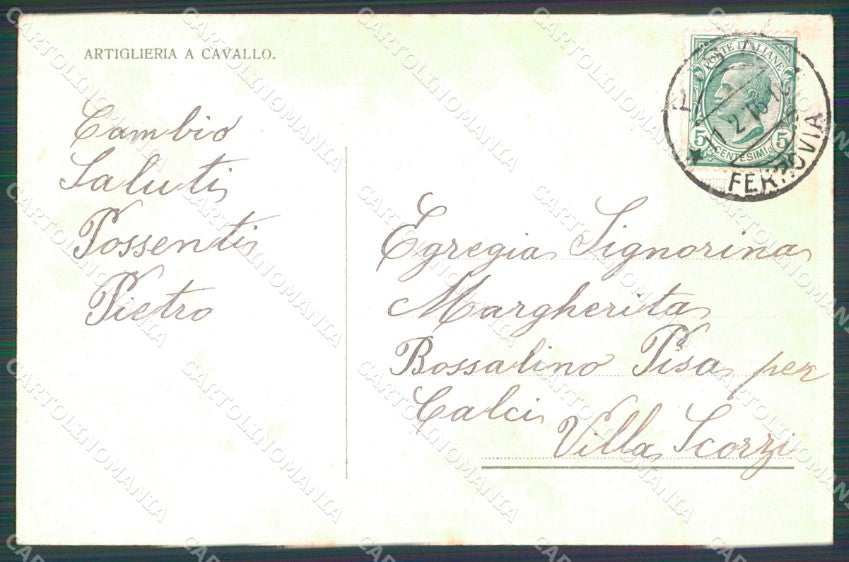 ARTIGLIERIA A CAVALLO.
POSTE ITALIANE
5 CENTESIMI 5
FERROVIA
Cambio
Saluti
Possenti
Pietro
Egregia Signorina
Margherita
Rossalino Pisa per
Calci
Villa Scorzi
CARTOLINOMANIA